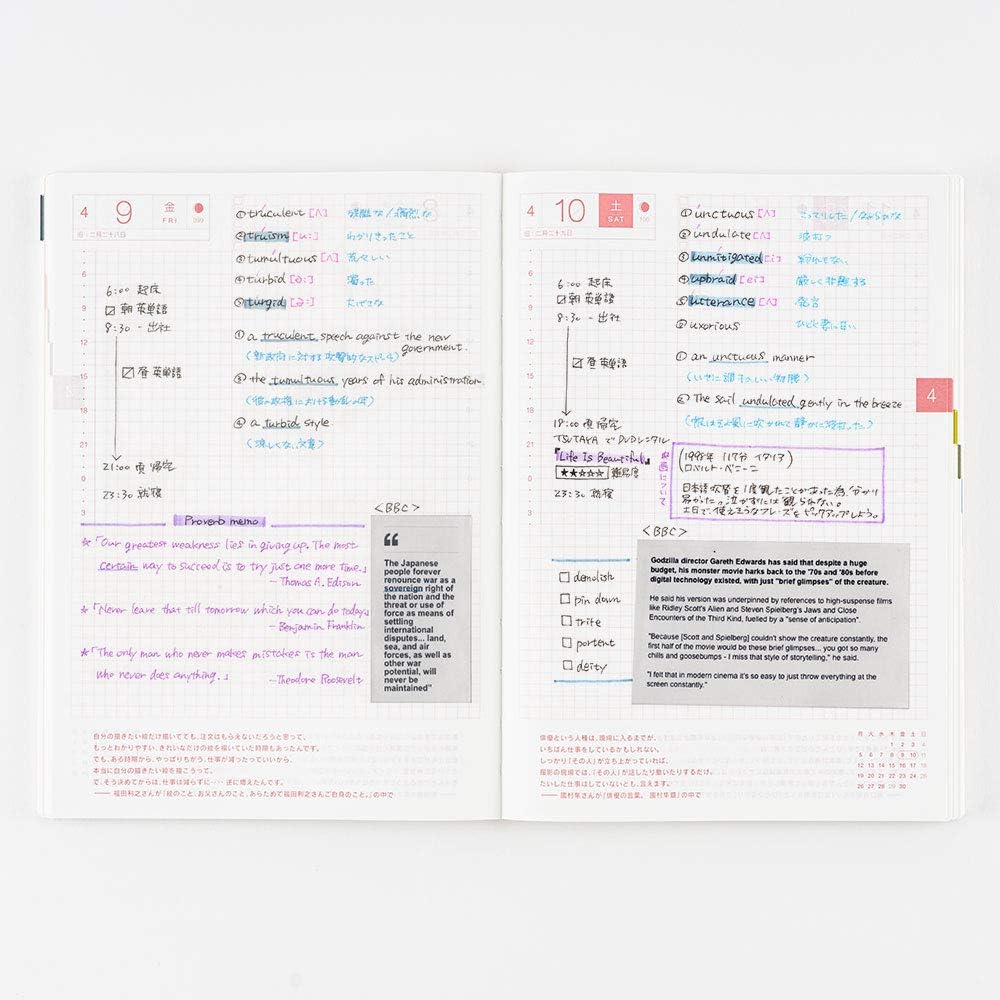 4 9 金 FRI 099
旧:二月二十八日
① truculent [ʌ] 残酷な/痛烈な
② truism [u:] わかりきったこと
③ tumultuous [ʌ] 荒々しい
④ turbid [ə:] 濁った
⑤ turgid [ə:] 大げさな
① a truculent speech against the new government.
(新政府に対する攻撃的なスピーチ)
③ the tumultuous years of his administration
(彼の政権における動乱の年)
④ a turbid style
6
6:00 起床
☑ 朝 英単語
9
8:30 - 出社
12
☑ 昼 英単語
15
18
21
21:00 頃 帰宅
0
23:30 就寝
3
Proverb memo
★「Our greatest weakness lies in giving up. The most
certain way to succeed is to try just one more time.」
— Thomas A. Edison
★「Never leave that till tomorrow which you can do today」
— Benjamin Franklin
★「The only man who never makes mistakes is the man
who never does anything.」
— Theodore Roosevelt
<BBC>
❝
The Japanese
people forever
renounce war as a
sovereign right of
the nation and the
threat or use of
force as means of
settling
international
disputes... land,
sea, and air
forces, as well as
other war
potential, will
never be
maintained"
自分の描きたい絵だけ描いてても、注文はもらえないだろうと思って、
もっとわかりやすい、きれいなだけの絵を描いていた時期もあったんです。
でも、ある時期から、やっぱりちがう、仕事が減ったっていいから、
本当に自分の描きたい絵を描こうって。
で、そう決めてからは、仕事は減らずに……逆に増えたんです。
—— 福田利之さんが『絵のこと、お父さんのこと、あらためて福田利之さんご自身のこと。』の中で
4 10 土 SAT 100
旧:二月二十九日
① unctuous [ʌ]
② undulate [ʌ] 波打つ
③ unmitigated [i]
④ upbraid [ei] 厳しく非難する
⑤ utterance [ʌ] 発言
② uxorious
① an unctuous manner
② The sail undulated gently in the breeze
6
6:00 起床
☑ 朝 英単語
9
8:30 - 出社
12
☑ 昼 英単語
15
18
18:00 頃 帰宅
21
TSUTAYA で DVDレンタル
『Life Is Beautiful』
★★★★☆ 難易度
0
23:30 就寝
3
映画について
(1998年 117分 イタリア)
(ロベルト・ベニーニ)
日本語吹替を1度観たことがあった為、分かり
易かった。泣かずには観られない。
土日で、使えそうなフレーズをピックアップしよう。
4
☐ demolish
☐ pin down
☐ trite
☐ portent
☐ deity
<BBC>
Godzilla director Gareth Edwards has said that despite a huge
budget, his monster movie harks back to the '70s and '80s before
digital technology existed, with just "brief glimpses" of the creature.
He said his version was underpinned by references to high-suspense films
like Ridley Scott's Alien and Steven Spielberg's Jaws and Close
Encounters of the Third Kind, fuelled by a "sense of anticipation".
"Because [Scott and Spielberg] couldn't show the creature constantly, the
first half of the movie would be these brief glimpses... you got so many
chills and goosebumps - I miss that style of storytelling," he said.
"I felt that in modern cinema it's so easy to just throw everything at the
screen constantly."
俳優という人種は、現場に入るまでが、
いちばん仕事をしているかもしれない。
しっかり「その人」が立ち上がっていれば、
撮影の現場では、「その人」が話したり動いたりするだけ。
たいした仕事はしていないとも、言えます。
—— 國村隼さんが『俳優の言葉。 國村隼篇』の中で
月 火 水 木 金 土 日
1 2 3 4
5 6 7 8 9 10 11
12 13 14 15 16 17 18
19 20 21 22 23 24 25
26 27 28 29 30